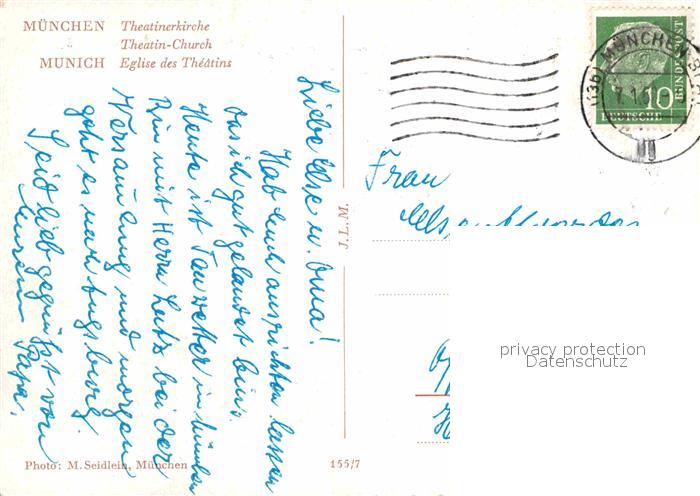 MÜNCHEN Theatinerkirche
Theatin-Church
MUNICH Eglise des Théâtins
Liebe Else u. Oma!
Hab Euch ausrichten lassen
das ich gut gelandet bin.
Heute ist Tauwetter in München
Bin mit Herrn Lutz bei der
Versammlung und morgen
geht es nach Augsburg.
Seid lieb gegrüßt von
Eurem Papa.
Photo: M. Seidlein, München
155/7
MÜNCHEN
10
DEUTSCHE
BUNDESPOST
Frau
privacy protection
Datenschutz